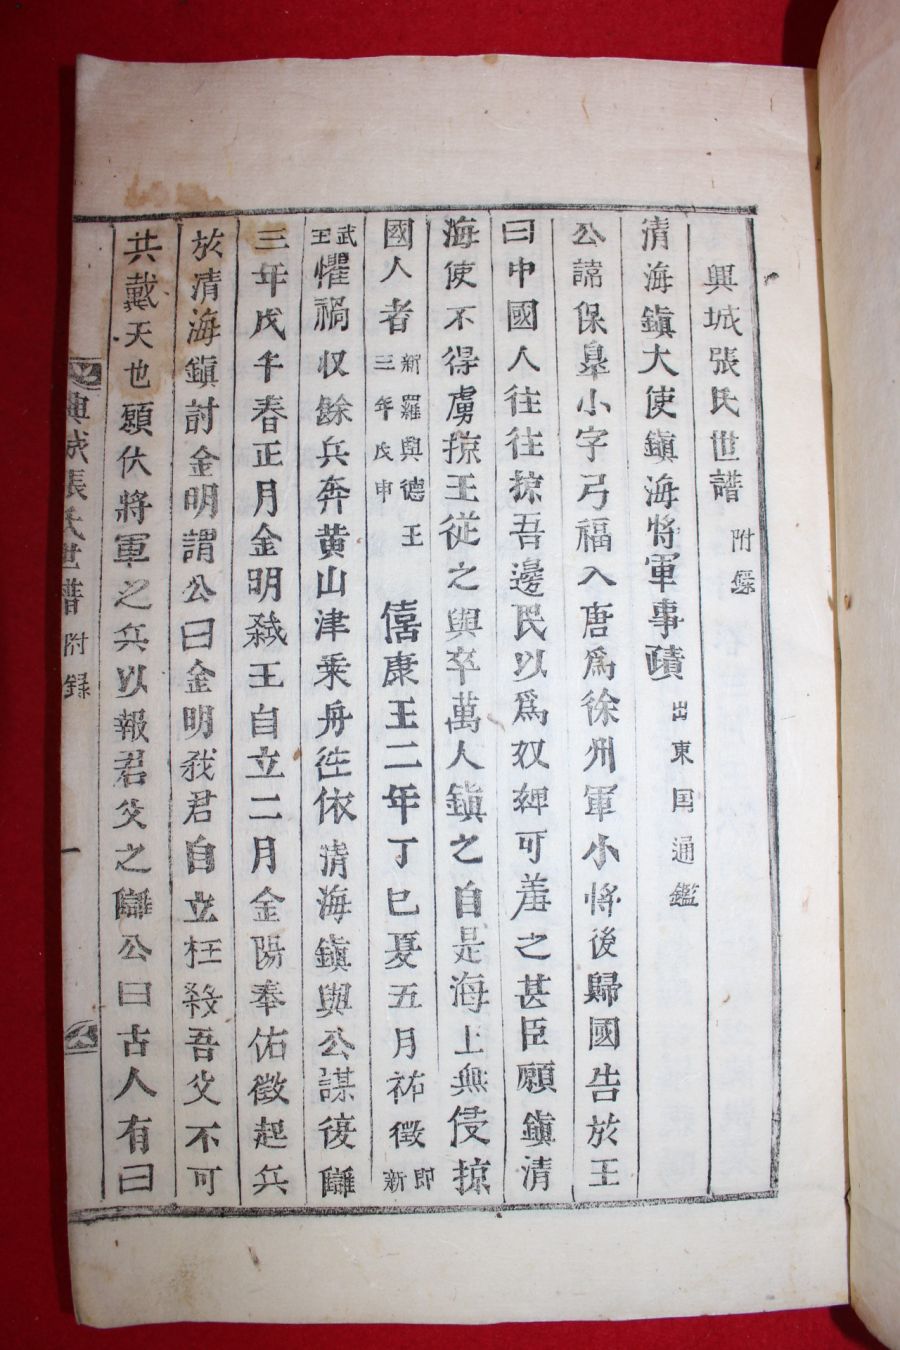 興城張氏世譜 附錄
清海鎭大使鎭海將軍事蹟 出東国通鑑
公諱保臯小字弓福入唐爲徐州軍小將後歸國告於王
曰中國人徃徃掠吾邊民以爲奴婢可羞之甚臣願鎭清
海使不得虜掠王從之與卒萬人鎭之自是海上無侵掠
國人者 新羅興德王三年戊申 僖康王二年丁巳夏五月祐徵 即新
武王 懼禍収餘兵奔黄山津乘舟徃依清海鎭與公謀復讎
三年戊午春正月金明弑王自立二月金陽奉佑徵起兵
於清海鎭討金明謂公曰金明弑君自立枉殺吾父不可
共戴天也願仗將軍之兵以報君父之讎公曰古人有曰
興城張氏世譜 附錄 一